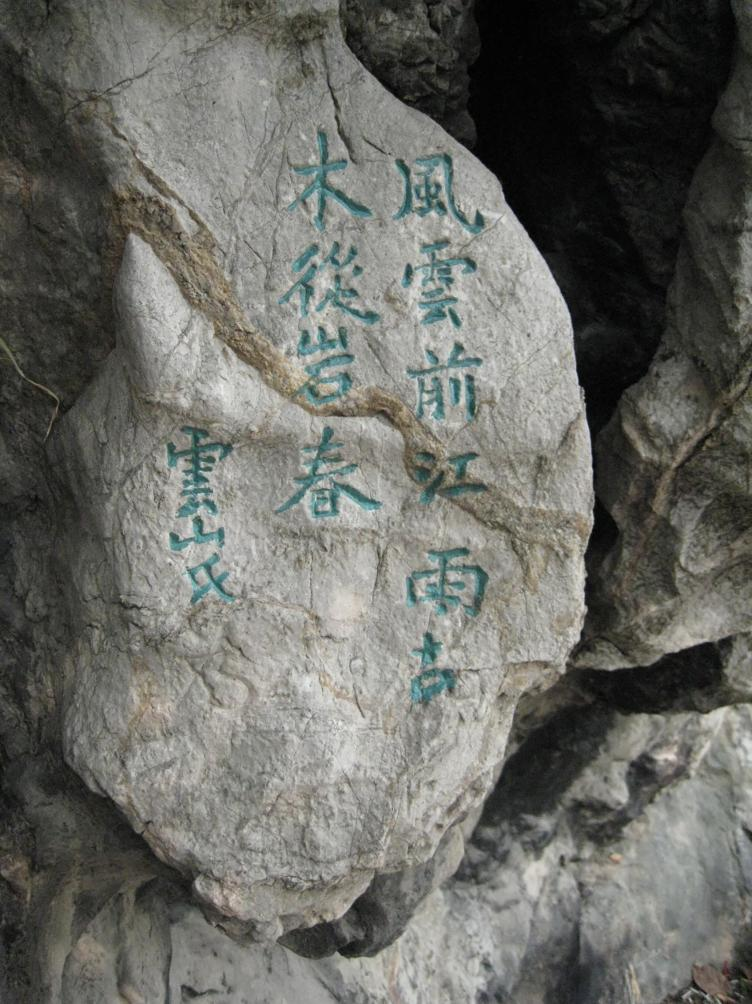 風雲前江雨古
木從岩春
雲山氏